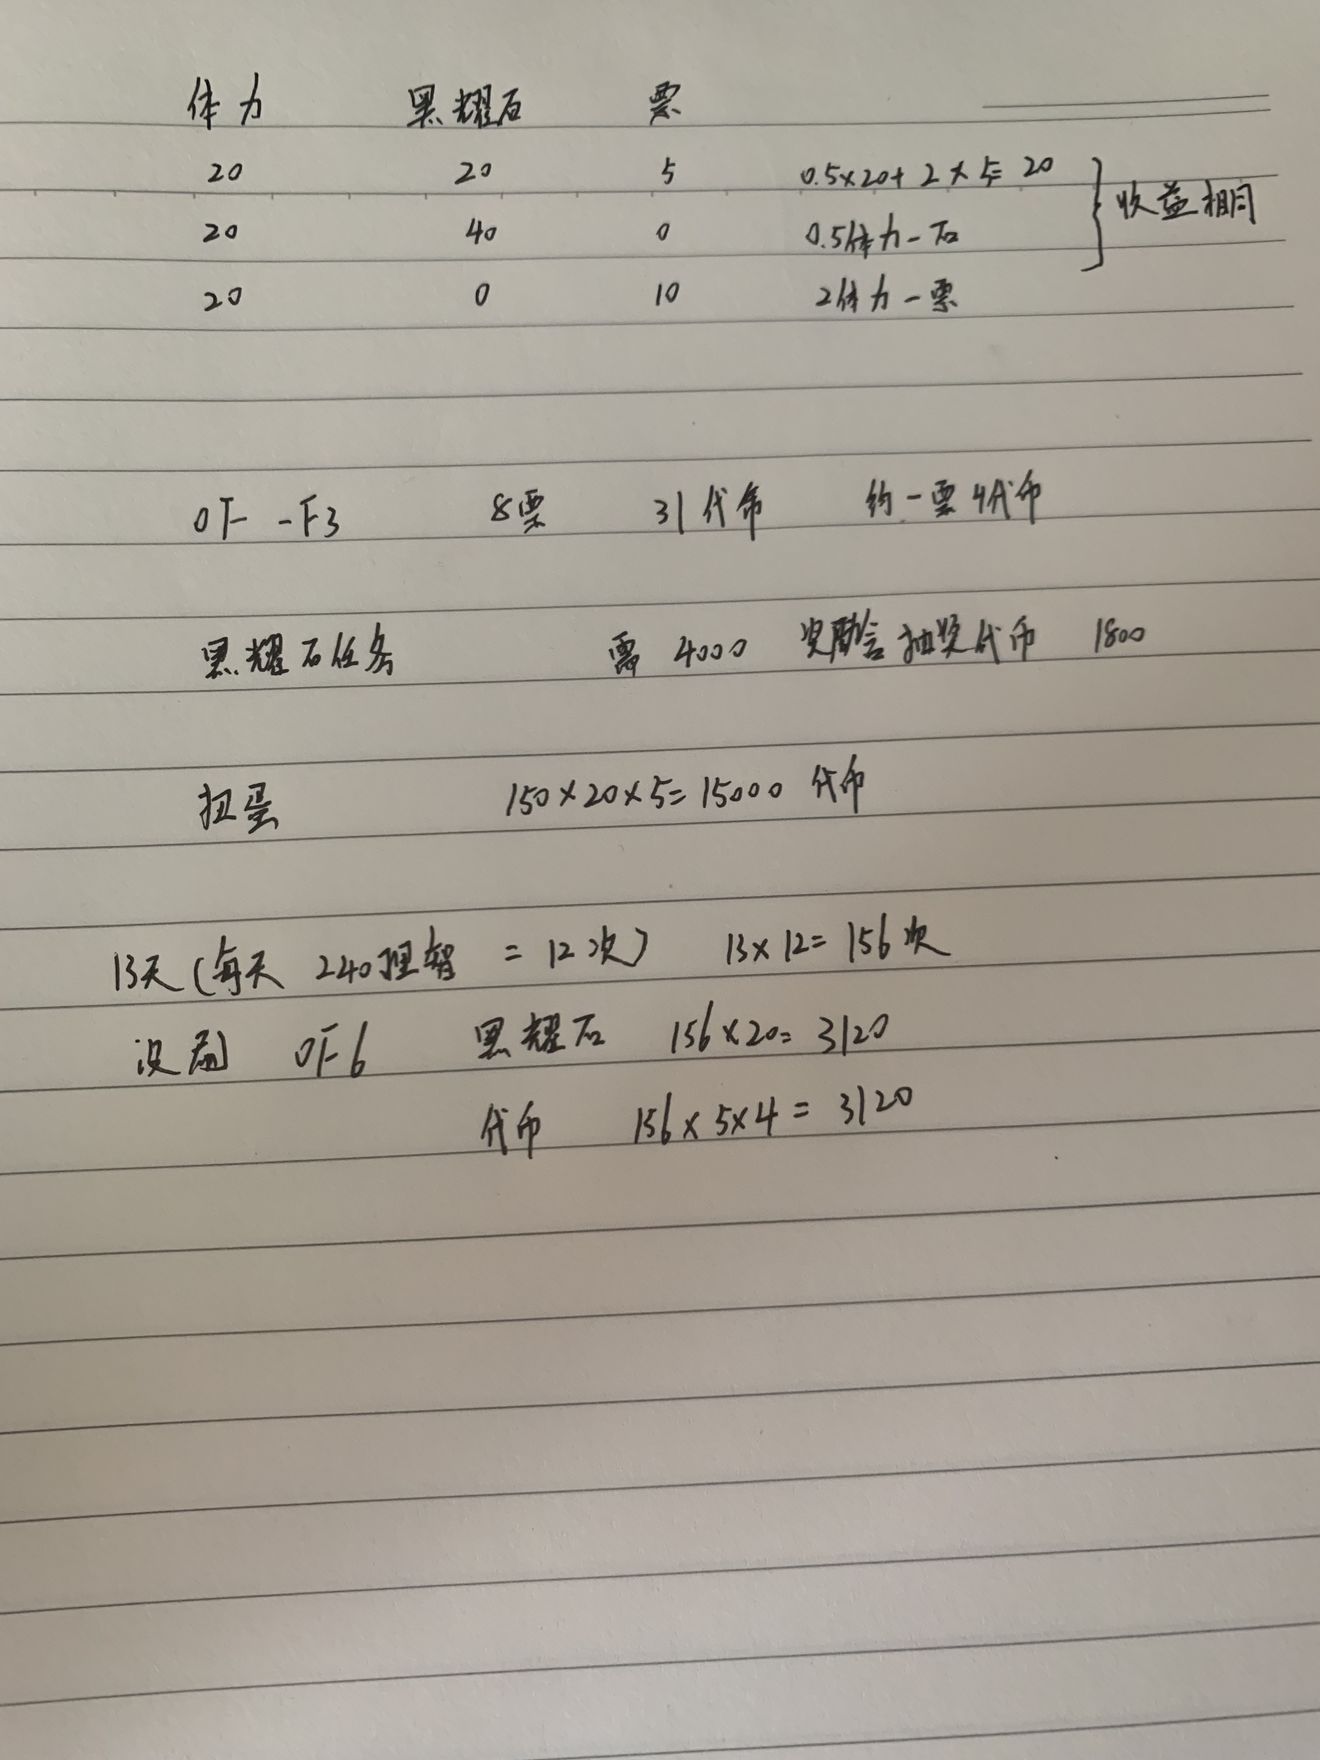 体力 黑耀石 票
20 20 5 0.5×20+2×5=20
20 40 0 0.5体力-石
收益相同
20 0 10 2体力-票
OF--F3 8票 31代币 约一票4代币
黑耀石任务 需 4000 奖励含抽奖代币 1800
扭蛋 150×20×5=15000 代币
13天(每天 240理智 = 12次) 13×12=156次
没刷 OF6 黑耀石 156×20=3120
代币 156×5×4=3120